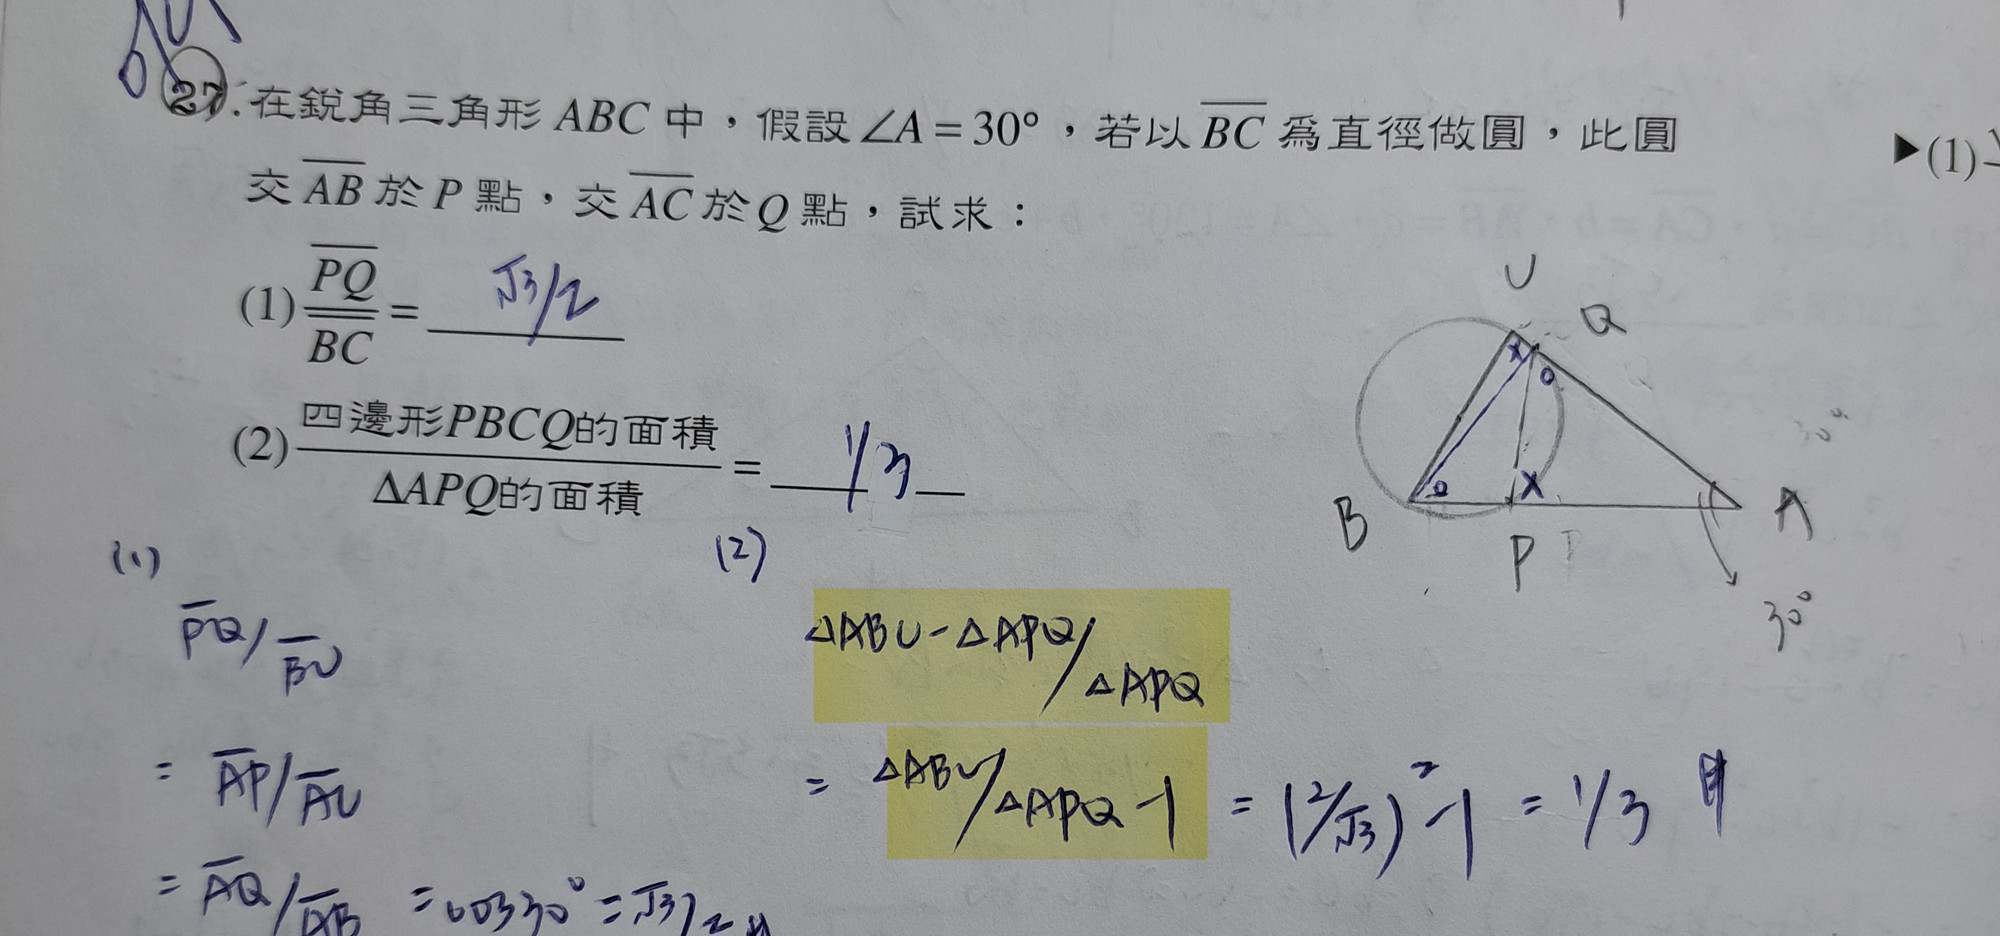 27.在銳角三角形 ABC 中，假設∠A=30°，若以 BC 為直徑做圓，此圓
交 AB 於 P 點，交 AC 於 Q 點，試求：
(1) PQ/BC = √3/2
(2) 四邊形PBCQ的面積/ΔAPQ的面積 = 1/3
▶(1)
C
Q
B
P
A
30°
(1)
PQ/BC
= AP/AC
= AQ/AB = cos30° = √3/2
(2)
ΔABC-ΔAPQ/ΔAPQ
= ΔABC/ΔAPQ -1 = (2/√3)² -1 = 1/3